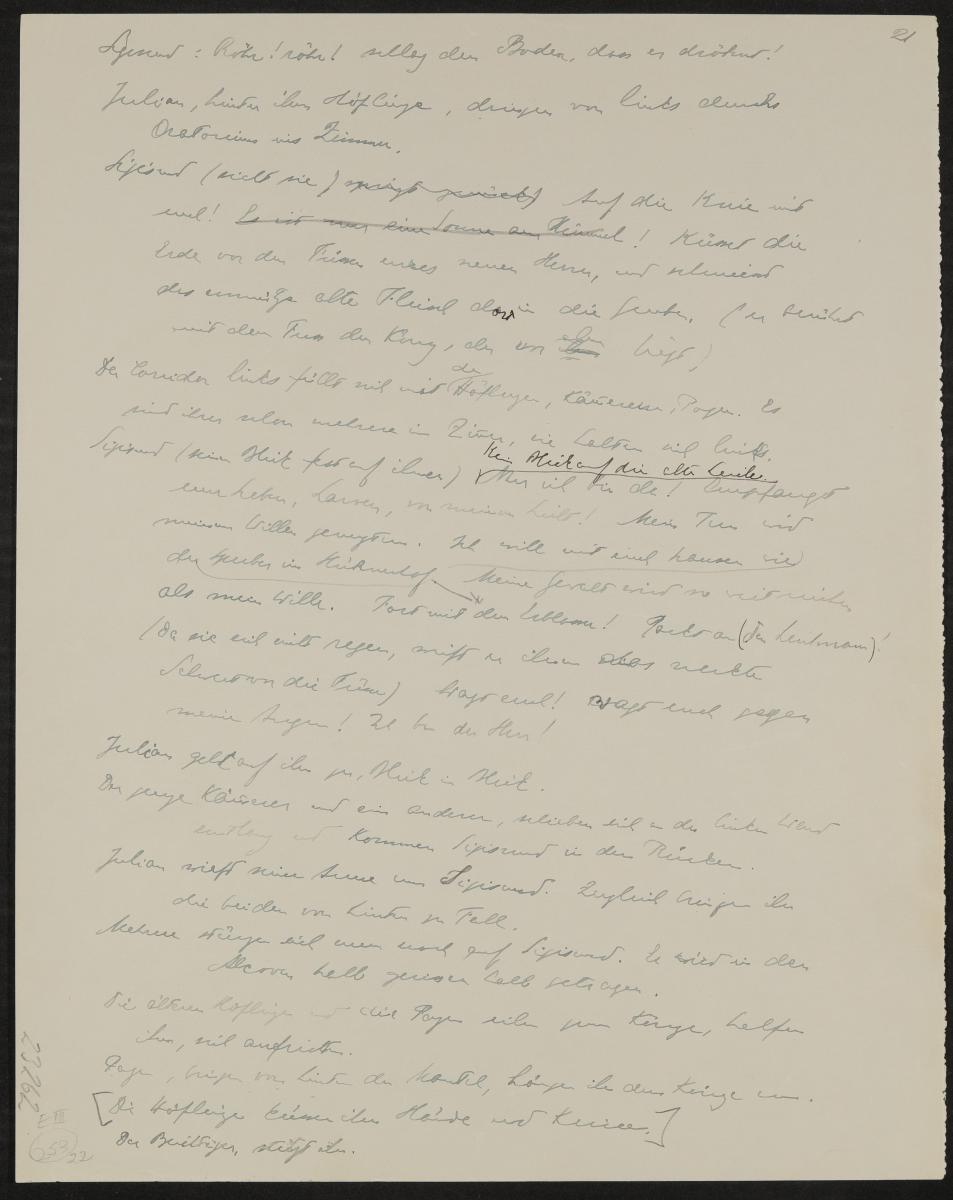 21
Sigismund : Röhr! röhr! schlag den Boden, dass es dröhnt!
Julian, hinter ihm Höflinge, dringen von links durchs
Oratorium ins Zimmer.
Sigismund (sieht sie) springt zurück) Auf die Knie mit
euch! Es ist nur eine Sonne am Himmel! Küsset die
Erde vor den Füssen eures neuen Herrn, und schmeisst
das unnütze alte Fleisch dort in die Grube. (er berührt
mit dem Fuss den König, der vor ihm liegt)
Der Corridor links füllt sich mit den Höflingen, Kämmerern, Pagen. Es
sind ihrer schon mehrere im Zimmer, sie halten sich links.
Sigismund (sein Blick fest auf ihnen) Kein Blick auf die alte Leiche. Nur ich bin da! Empfanget
euer Leben, Larven, von meinem Licht! Mein Tun wird
meinem Willen genugtun. Ich will mit euch hausen wie
der Sperber im Hühnerhof. Meine Gewalt wird so weit reichen
als mein Wille. Fort mit dem Leblosen! Packt an (den Leichnam)!
(Da sie sich nicht regen, wirft er ihnen das nackte
Schwert vor die Füsse) Wagt euch! wagt euch gegen
meine Augen! Ich bin der Herr!
Julian geht auf ihn zu, Blick in Blick.
Der junge Kämmerer und ein anderer, schieben sich an der linken Wand
entlang und kommen Sigismund in den Rücken.
Julian wirft seine Arme um Sigismund. Zugleich bringen ihn
die beiden von hinten zu Fall.
Mehrere stürzen sich nun noch auf Sigismund. Er wird in den
Alcoven halb gerissen halb getragen.
Die älteren Höflinge und die Pagen eilen zum König, helfen
ihm, sich aufrichten.
Pagen, bringen von hinten den Mantel, hängen ihn dem König um.
[Die Höflinge küssen ihm Hände und Kniee.]
Der Beichtiger, stützt ihn.
E III